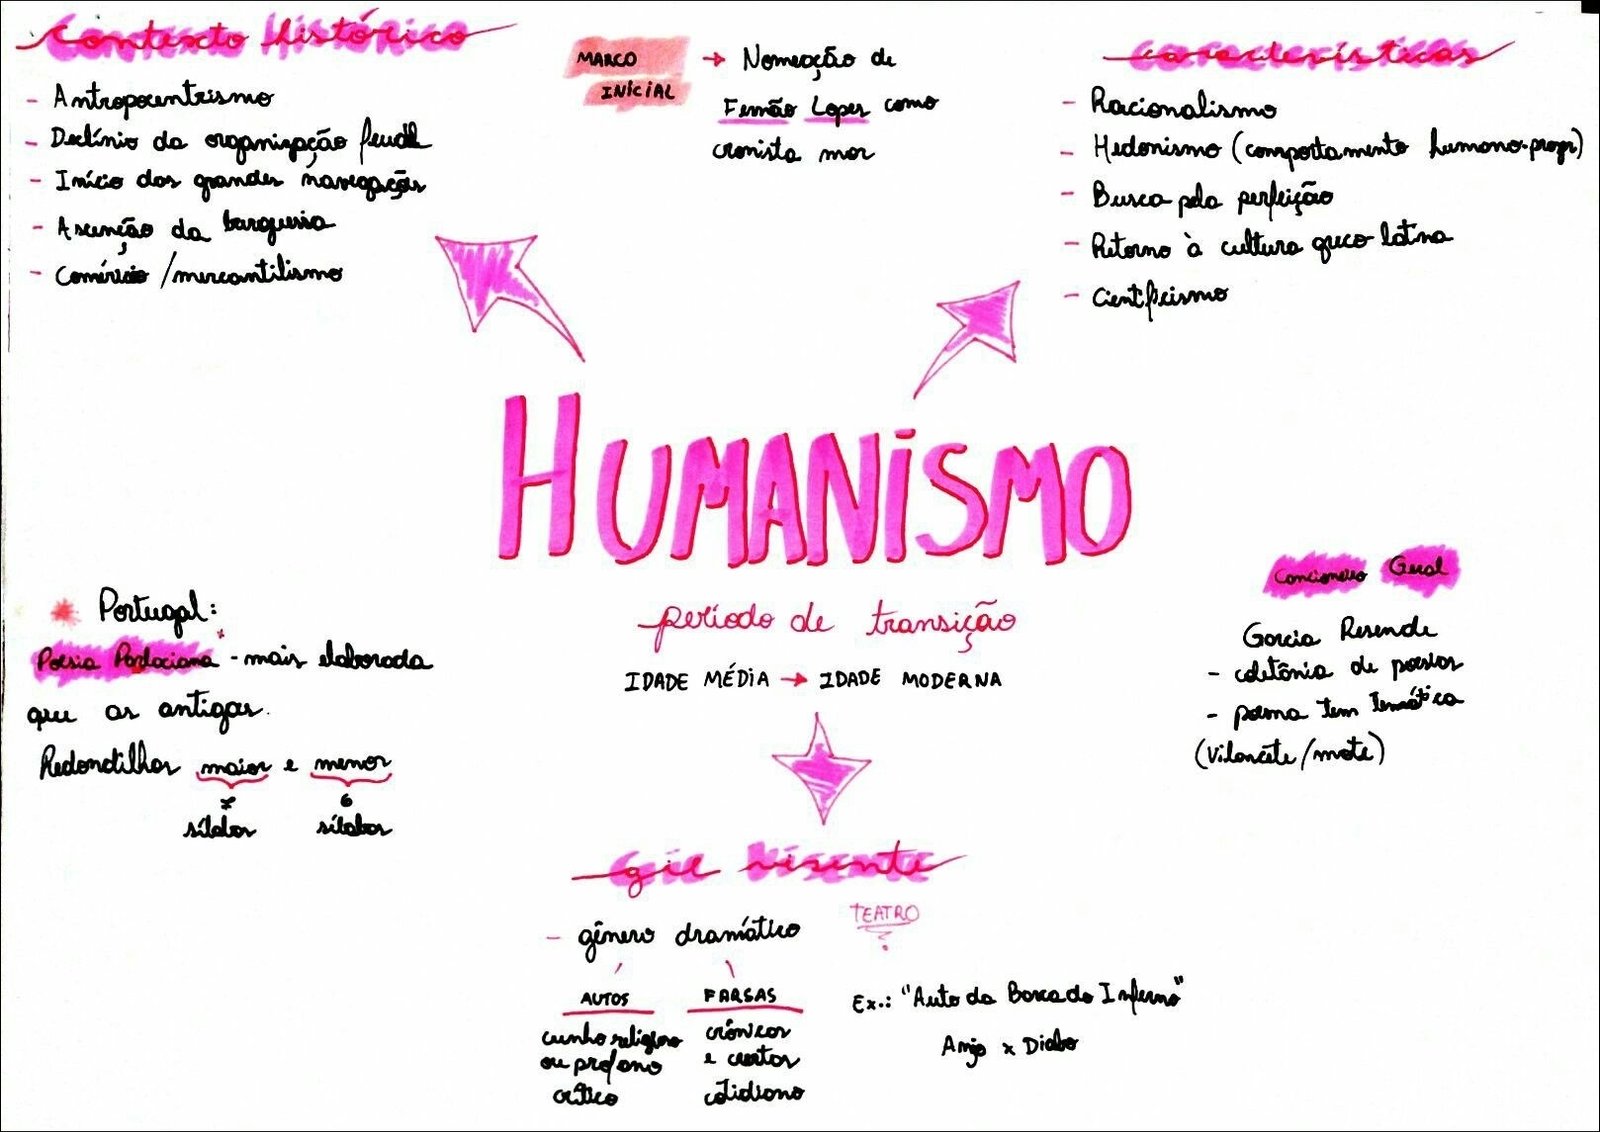 Contexto histórico
- Antropocentrismo
- Declínio da organização feudal
- Início das grandes navegações
- Ascenção da burguesia
- Comércio /mercantilismo
MARCO INICIAL → Nomeação de
Fernão Lopes como
cronista mor
características
- Racionalismo
- Hedonismo (comportamento humano-propr)
- Busca pela perfeição
- Retorno à cultura greco-latina
- Cientificismo
HUMANISMO
período de transição
IDADE MÉDIA → IDADE MODERNA
* Portugal:
Poesia Parlaciana - mais elaborada
que as antigas.
Redondilhas maior e menor
7 6
sílabas sílabas
Cancioneiro Geral
Garcia Resende
- coletânia de poesias
- poema tem temática
(Vilancete/mote)
gil visente
- gênero dramático
TEATRO
AUTOS
cunho religioso
ou profano
crítico
FARSAS
crônicas
e
cotidiano
Ex.: "Auto da Barca do Inferno"
Anjo x Diabo